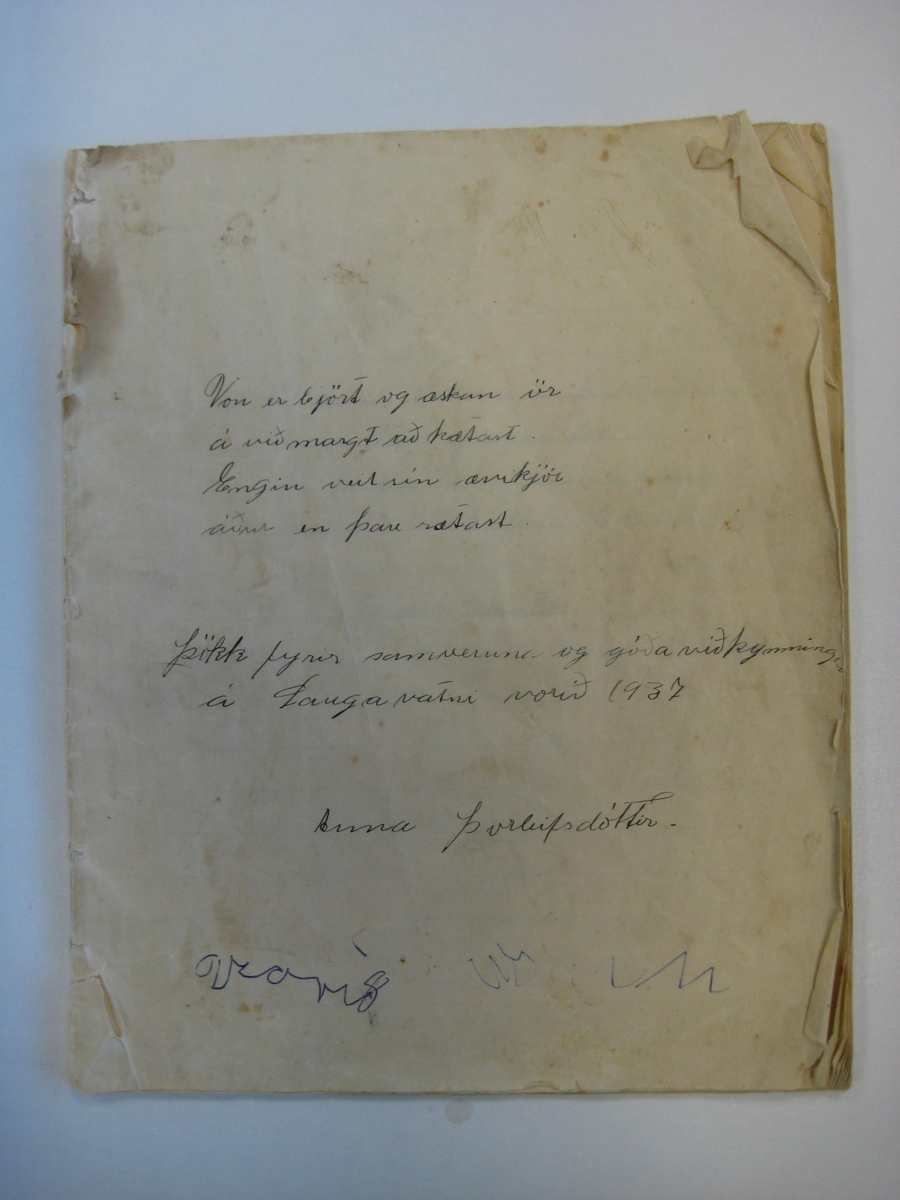 Von er björt og æskan ör
á við margt að kætast.
Engin veit sín ævikjör
áður en þau rætast.
Þökk fyrir samveruna og góða viðkynningu
á Laugavatni vorið 1937
Anna Þorleifsdóttir.